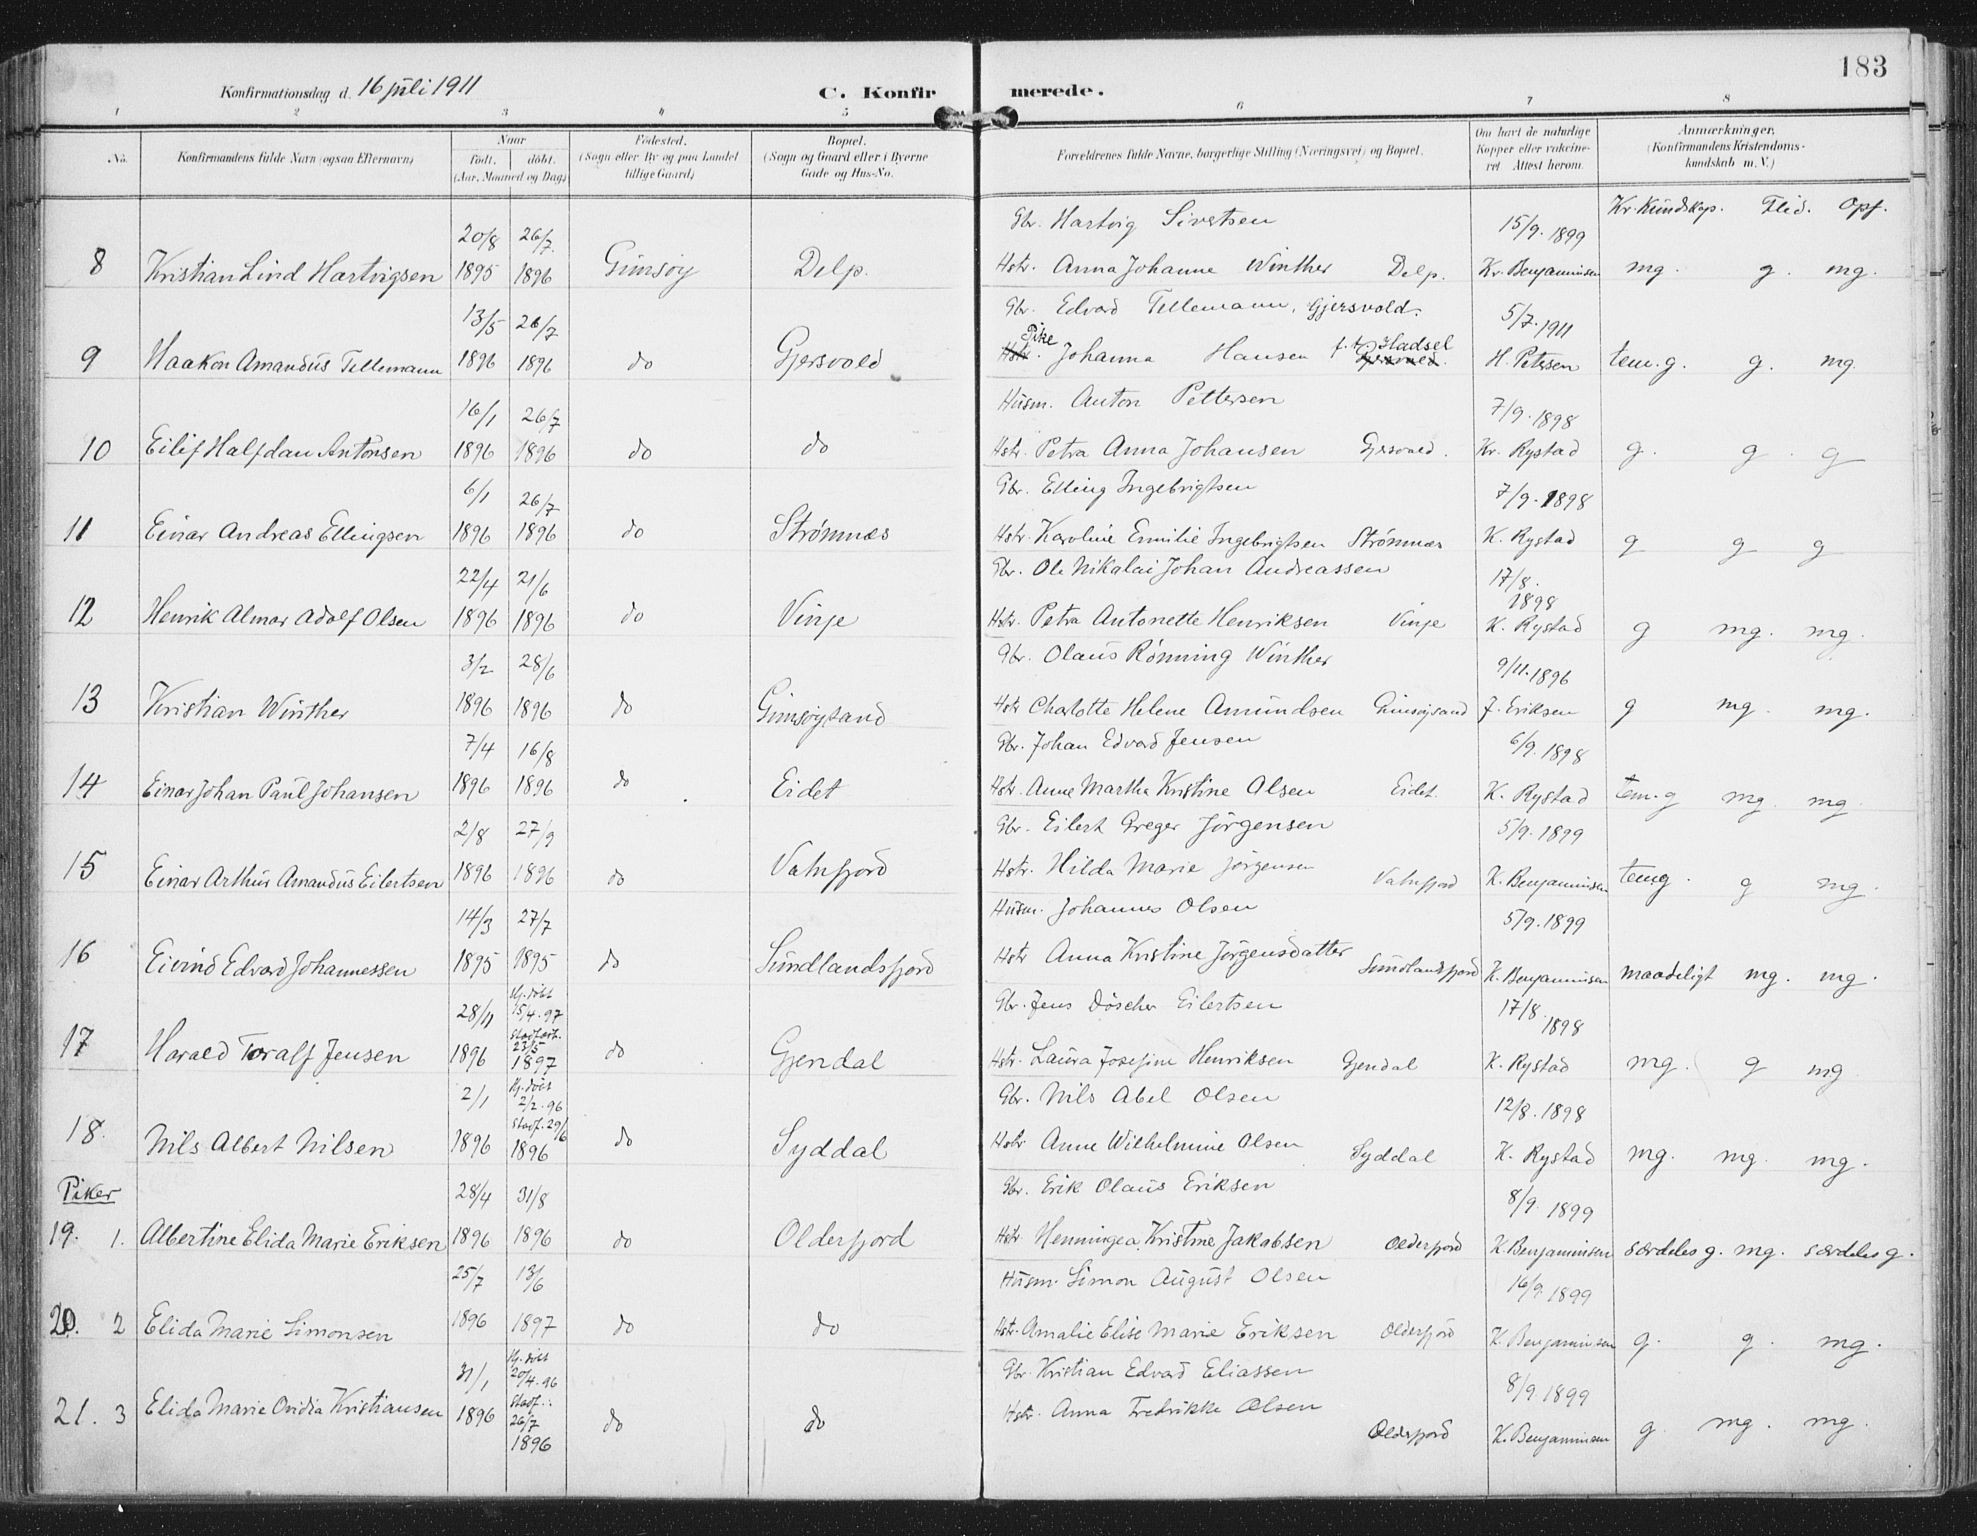 183
Konfirmationsdag d. 16 juli 1911 C. Konfirmerede.
1 2 3 4 5 6 7 8
No. Konfirmandens fulde Navn (ogsaa Efternavn) Naar født. døbt. (Aar, Maaned og Dag) Fødested. (Sogn eller By og paa Landet tillige Gaard) Bopæl. (Sogn og Gaard eller i Byerne Gade og Hus-No. Forældrenes fulde Navne, borgerlige Stilling (Næringsvei) og Bopæl. Om havt de naturlige Kopper eller vakcineret Attest herom. Anmærkninger. (Konfirmandens Kristendomskundskab m. V.)
Kr. Kundskap. Flid. Opf.
20/8 26/7. Gbr. Hartvig Sivertsen 15/9. 1899
8 Kristian Lind Hartvigsen 1895 1896 Gimsøy Delp. Hstr. Anna Johanne Winther Delp. Kr. Benjaminsen mg. g. mg.
13/5 26/7 Gbr. Edvard Tellemann, Gjersvold. 5/7. 1911
9 Haakon Amandus Tellemann 1896 1896 do Gjersvold Pike Johanna Hansen Hadsel H. Petersen tem.g. g. mg.
16/1 26/7 Husm. Anton Pettersen 7/9. 1898
10 Eilif Halfdan Antonsen 1896 1896 do do Hstr. Petra Anna Johansen Gjersvold. Kr. Rystad g. g. g
6/1 26/7 Gbr. Elling Ingebrigtsen 7/9. 1898
11 Einar Andreas Ellingsen 1896 1896 do Strømnæs Hstr. Karoline Emilie Ingebrigtsen Strømnæs K. Rystad g g g
22/4 21/6 Gbr. Ole Nikolai Johan Andreassen 17/8. 1898
12 Henrik Almar Adolf Olsen 1896 1896 do Vinje Hstr. Petra Antonette Henriksen Vinje K. Rystad g mg. mg.
3/2 28/6 Gbr. Olaus Rønning Winther 9/11. 1896
13 Kristian Winther 1896 1896 do Gimsøysand Hstr Charlotte Helene Amundsen Gimsøysand J. Eriksen g mg. mg.
7/4 16/8 Gbr. Johan Edvard Jensen 6/9. 1898
14 Einar Johan Paul Johansen 1896 1896 do Eidet Hstr. Anne Martha Kristine Olsen Eidet. K. Rystad tem.g mg. mg.
2/8 27/9 Gbr. Eilert Greger Jørgensen 5/9. 1899
15 Einar Arthur Amandus Eilertsen 1896 1896 do Vatnfjord Hstr. Hilda Marie Jørgensen Vatnfjord K. Benjaminsen temg. g mg.
14/3 27/7 Husm. Johannes Olsen 5/9. 1899
16 Eivind Edvard Johannessen 1895 1895 do Sundlandsfjord Hstr Anna Kristine Jørgensdatter Sundlandsfjord K. Benjaminsen maadeligt mg. mg.
28/11 Hj. døbt 15/4. 97 Stadfæst. 23/5 Gbr. Jens Døscher Eilertsen 17/8. 1898
17 Harald Toralf Jensen 1896 1897 do Gjendal Hstr. Laura Josefine Henriksen Gjendal K. Rystad mg. g mg
2/1 Hj. døbt 2/2. 96 Stadf. 29/6 Gbr. Nils Abel Olsen 12/8. 1898
18. Nils Albert Nilsen 1896 1896 do Syddal Hstr Anne Wilhelmine Olsen Syddal K. Rystad mg. mg. mg.
Piker 28/4 31/8 Gbr. Erik Olaus Eriksen 8/9. 1899
19. 1. Albertine Elida Marie Eriksen 1896 1896 do Olderfjord Hstr Henningea Kristine Jakobsen Olderfjord K. Benjaminsen særdeles g. mg. særdeles g.
25/7 13/6 Husm. Simon August Olsen 16/9. 1899
20. 2 Elida Marie Simonsen 1896 1897 do do Hstr. Amalie Elise Marie Eriksen Olderfjord K. Benjaminsen g. g. mg.
31/1 Hj. døbt 20/4. 96 Stadf.: 26/7 Gbr. Kristian Edvard Eliassen 8/9. 1899
21. 3 Elida Marie Ovidia Kristiansen 1896 1896 do do Hstr. Anna Fredrikke Olsen Olderfjord K. Benjaminsen g mg. mg.